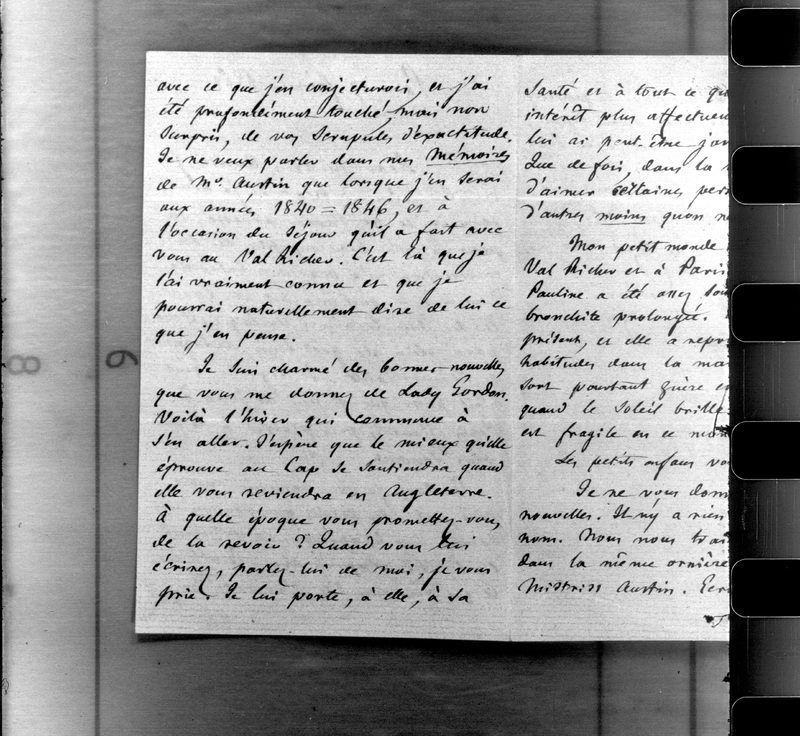 avec ce que j'en conjecturois, et j'ai
été profondément touché, mais non
surpris, de vos scrupules d'exactitude.
Je ne veux parler dans mes Mémoires
de Mr. Austin que lorsque j'en serai
aux années 1840=1846, et à
l'occasion du séjour qu'il a fait avec
vous au Val Richer. C'est là que je
l'ai vraiment connu et que je
pourrai naturellement dire de lui ce
que j'en pense.
Je suis charmé des bonnes nouvelles
que vous me donnez de Lady Gordon.
Voilà l'hiver qui commence à
s'en aller. J'espère que le mieux qu'elle
éprouve au Cap se soutiendra quand
elle vous reviendra en Angleterre.
À quelle époque vous promettez-vous
de la revoir ? Quand vous lui
écrirez, parlez-lui de moi, je vous
prie. Je lui porte, à elle, à sa
santé et à tout ce qu
intérêt plus affectueu
lui ai peut-être jam
Que de fois, dans la
d'aimer certaines pers
d'autres moins qu'on n
Mon petit monde
Val Richer et à Paris
Pauline a été assez sou
bronchite prolongée.
présent, et elle a repri
habitudes dans la mai
sort pourtant guère e
quand le soleil brille
est fragile en ce mon
Les petits enfans vo
Je ne vous donn
nouvelles. Il n'y a rien
nom. Nous nous traî
dans la même ornière
Mistriss Austin. Ecri